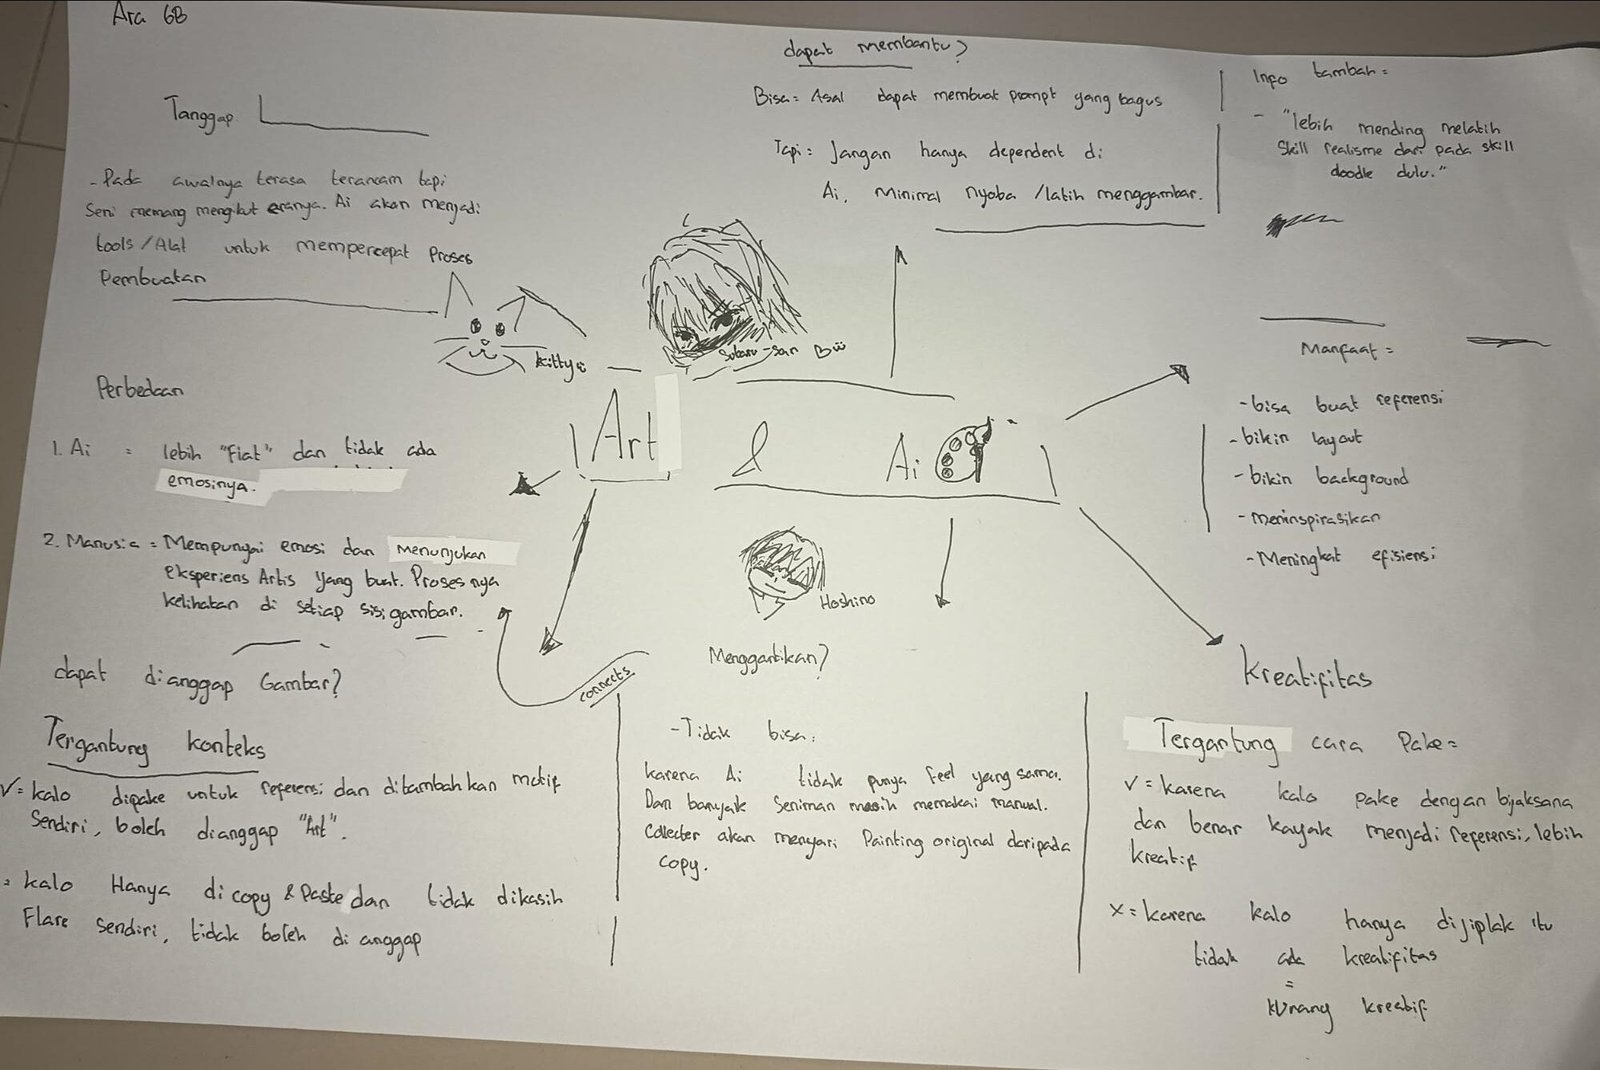 Ara 6B
Tanggap
- Pada awalnya terasa terancam tapi
Seni memang mengikut eranya. Ai akan menjadi
tools/Alat untuk mempercepat Proses
Pembuatan
dapat membantu?
Bisa = Asal dapat membuat prompt yang bagus
Tapi = Jangan hanya dependent di
Ai, Minimal nyoba /latih menggambar.
Info tambah =
- "lebih mending melatih
Skill realisme dari pada skill
doodle dulu."
kitty
Subaru-san
Perbedaan
1. Ai = lebih "Flat" dan tidak ada
emosinya.
2. Manusia = Mempunyai emosi dan Menunjukan
eksperiens Artis yang buat. Prosesnya
kelihatan di setiap sisi gambar.
Art & Ai
Manfaat =
- bisa buat referensi
- bikin layout
- bikin background
- Meninspirasikan
- Meningkat efisiensi
Hoshino
connects
dapat dianggap Gambar?
Tergantung konteks
✓= kalo dipake untuk referensi dan ditambahkan motif
Sendiri, boleh dianggap "Art".
= kalo Hanya di copy & Paste dan tidak dikasih
Flare sendiri, tidak boleh di anggap
Menggantikan?
- Tidak bisa:
karena Ai tidak punya Feel yang sama.
Dan banyak Seniman masih memakai manual.
Collecter akan menyari Painting original daripada
copy.
Kreatifitas
Tergantung cara Pake=
✓= karena kalo pake dengan bijaksana
dan benar kayak menjadi referensi, lebih
kreatif
X= karena kalo hanya dijiplak itu
tidak ada kreatifitas
=
kurang kreatif